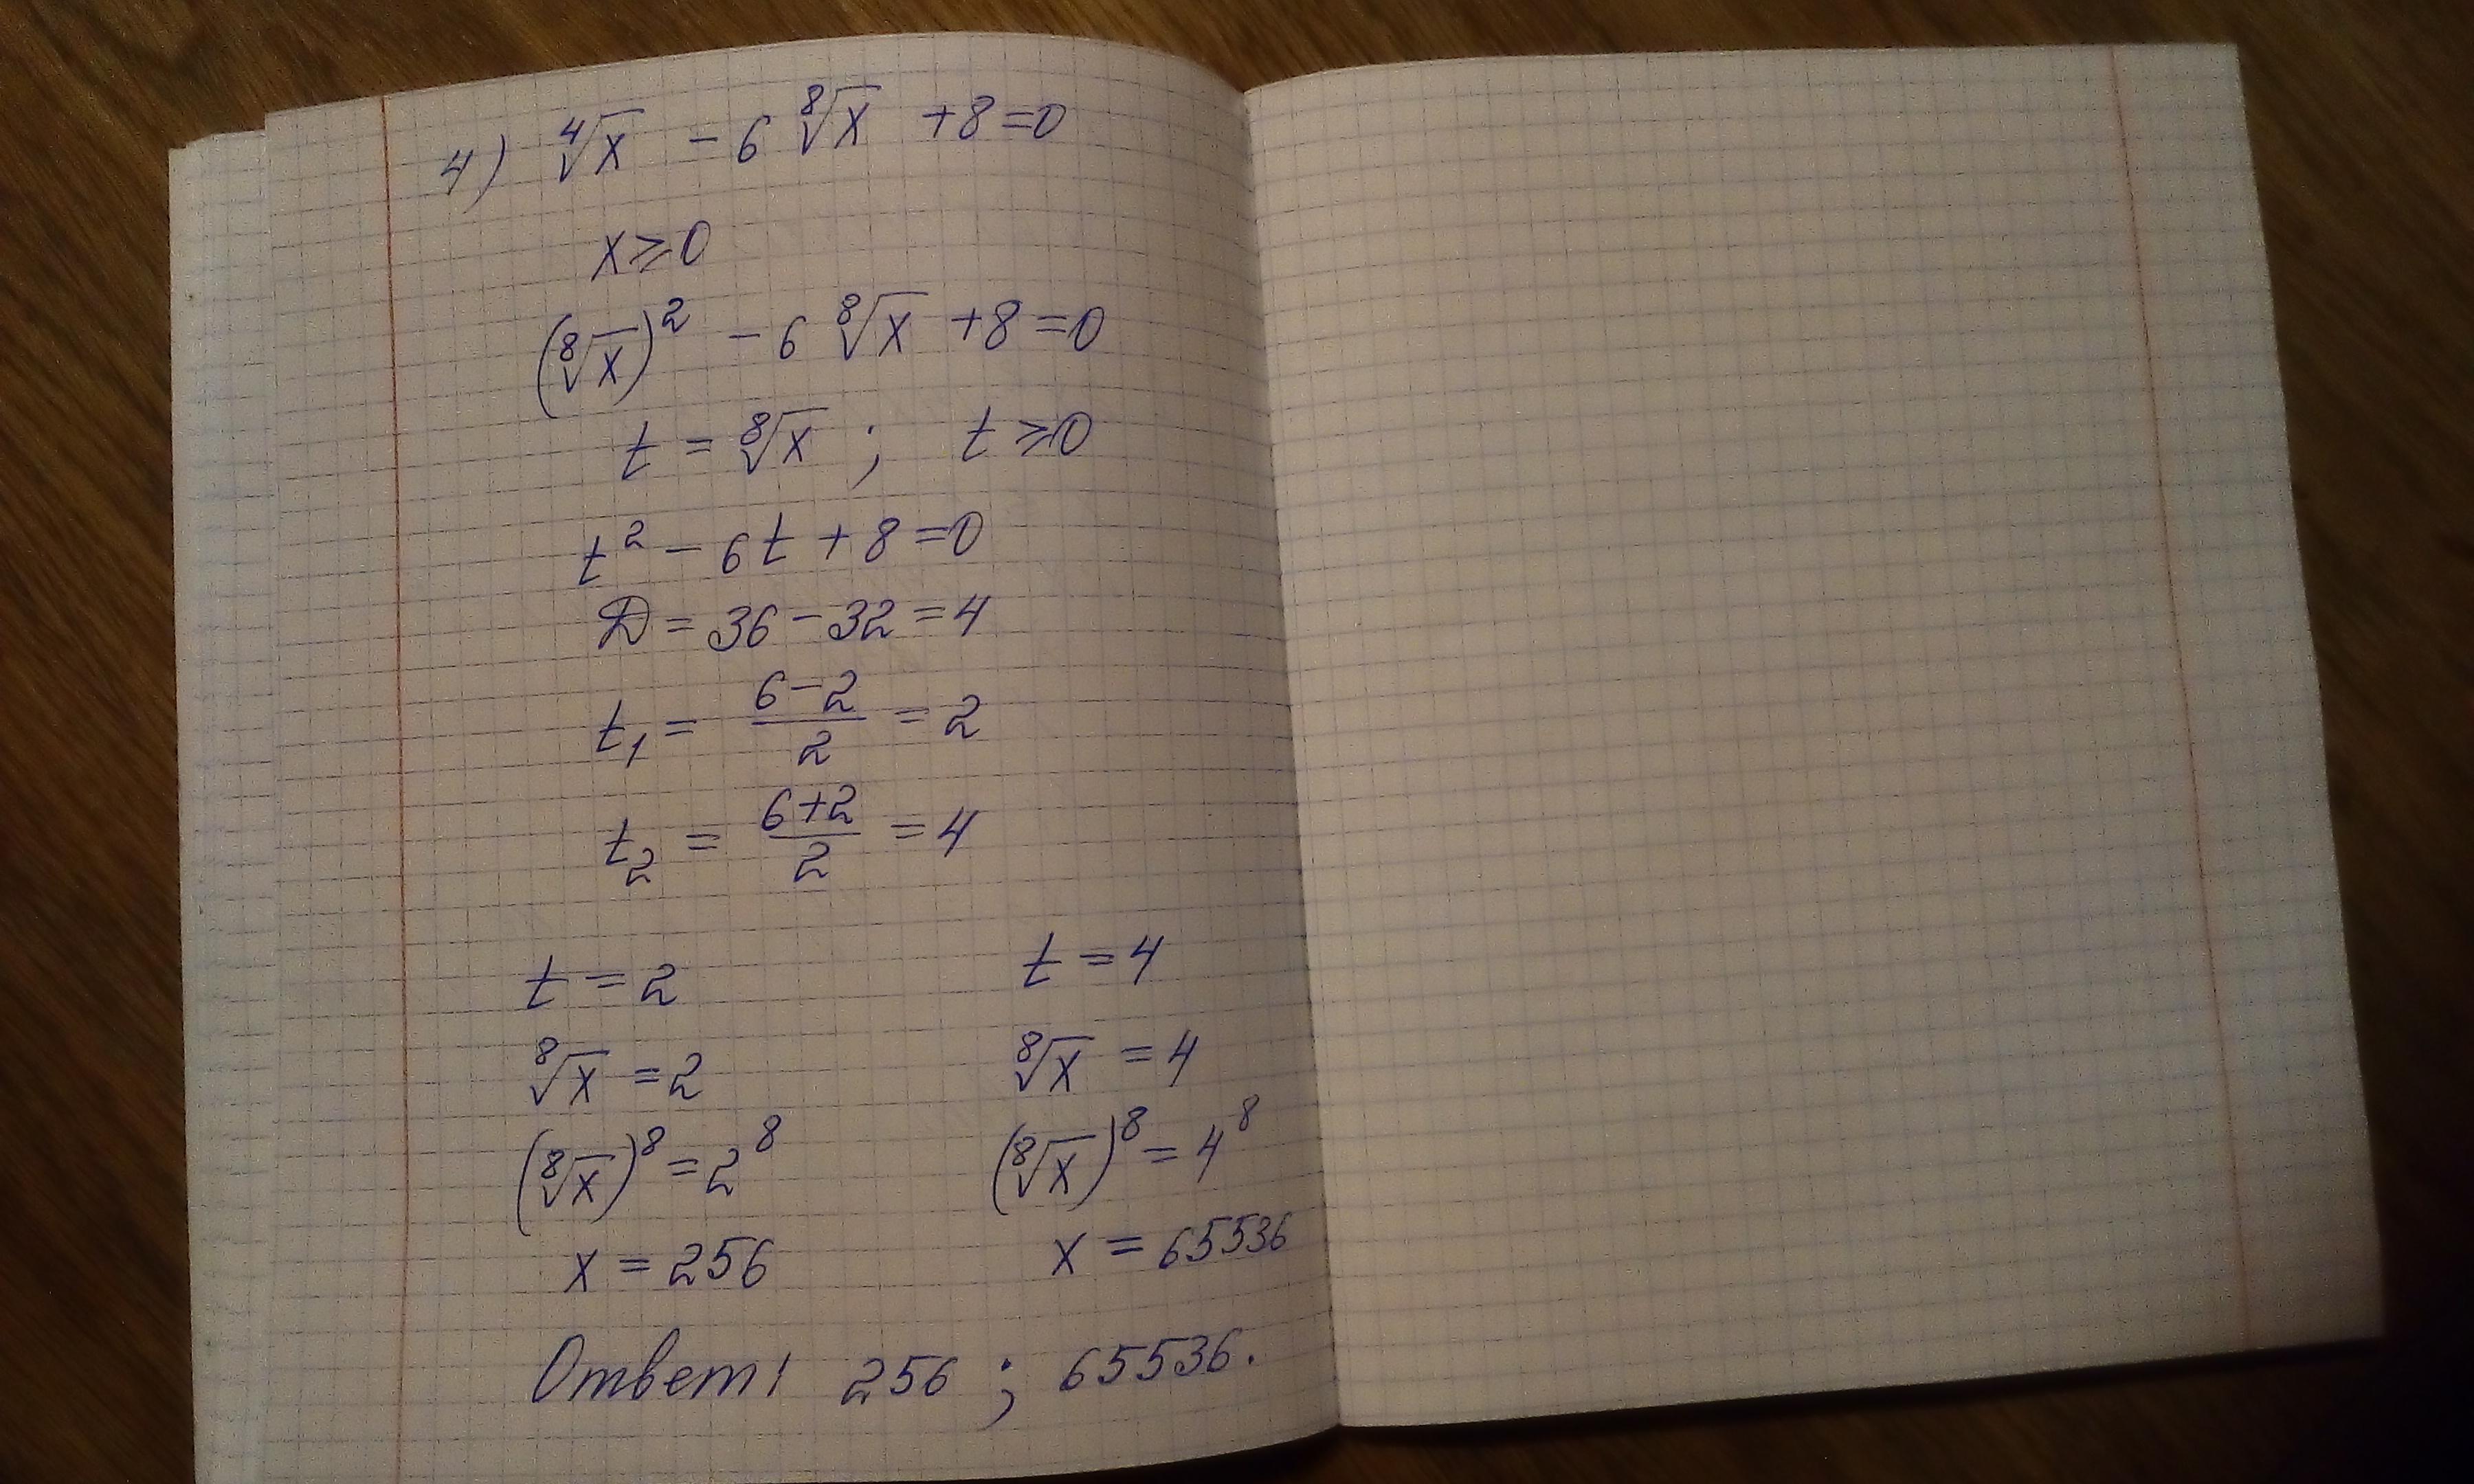 4) ⁴√x - 6 ⁸√x + 8 = 0
x ≥ 0
(⁸√x)² - 6 ⁸√x + 8 = 0
t = ⁸√x ; t ≥ 0
t² - 6t + 8 = 0
D = 36 - 32 = 4
t₁ = (6-2)/2 = 2
t₂ = (6+2)/2 = 4
t = 2 t = 4
⁸√x = 2 ⁸√x = 4
(⁸√x)⁸ = 2⁸ (⁸√x)⁸ = 4⁸
x = 256 x = 65536
Ответ: 256 ; 65536.